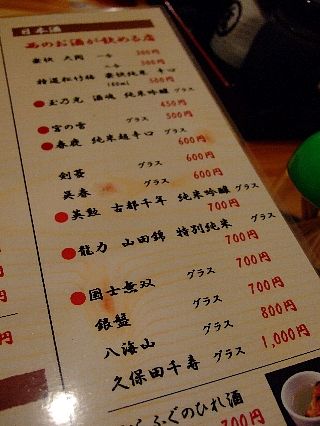 日本酒
西のお酒が飲める店
豪快 大関 一合 300円
二合 500円
特選松竹梅 豪快純米 辛口
180ml 500円
玉乃光 酒魂 純米吟醸 グラス
450円
宮の雪 グラス 500円
春鹿 純米超辛口 グラス
600円
剣菱 グラス 600円
呉春 グラス 600円
英勲 古都千年 純米吟醸 グラス
700円
龍力 山田錦 特別純米 グラス
700円
国士無双 グラス 700円
銀盤 グラス 700円
八海山 グラス 800円
久保田千寿 グラス 1,000円
ふぐのひれ酒
700円
円
円
円